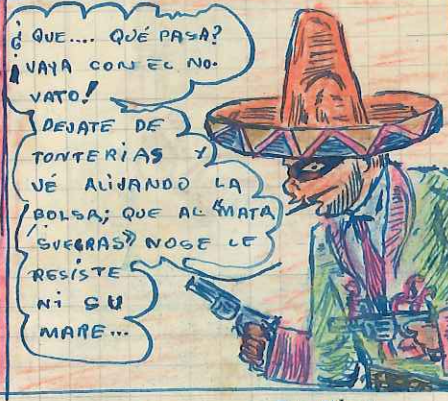 ¿QUE.... QUÉ PASA?
¡VAYA CON EL NO-
VATO!
DEJATE DE
TONTERIAS Y
VÉ ALIJANDO LA
BOLSA; QUE AL "MATA
SUEGRAS" NOSE LE
RESISTE
NI SU
MARE...